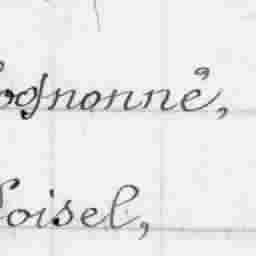 ognonné,
oisel,